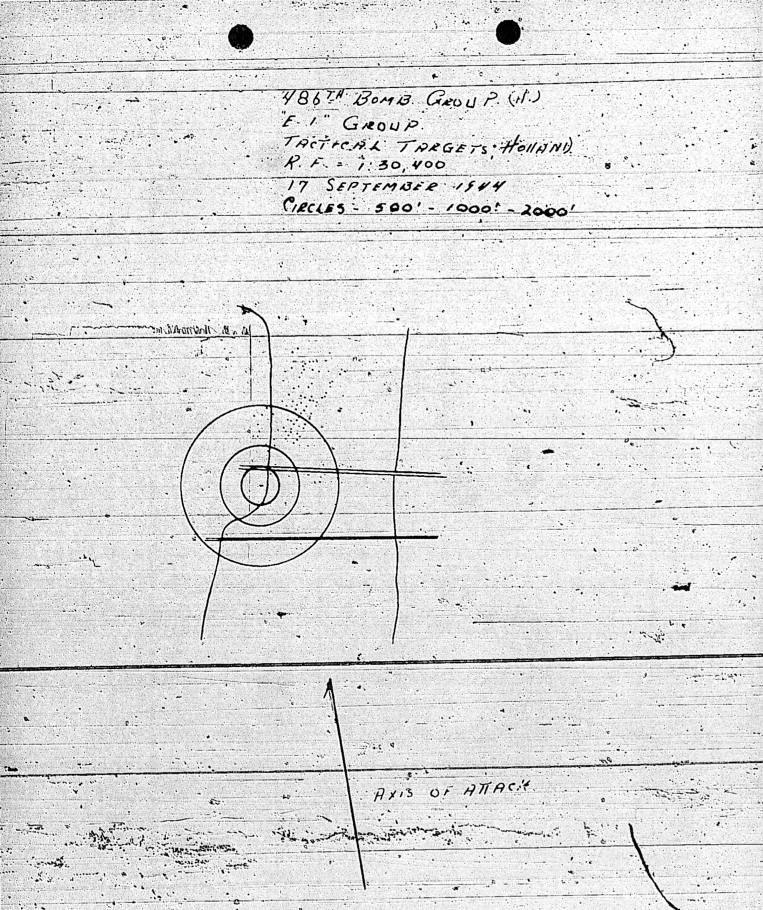 486TH BOMB GROUP. (H.)
"E-1" GROUP
TACTICAL TARGETS, HOLLAND
R.F. = 1:30,400
17 SEPTEMBER 1944
CIRCLES - 500' - 1000' - 2000'
AXIS OF ATTACK